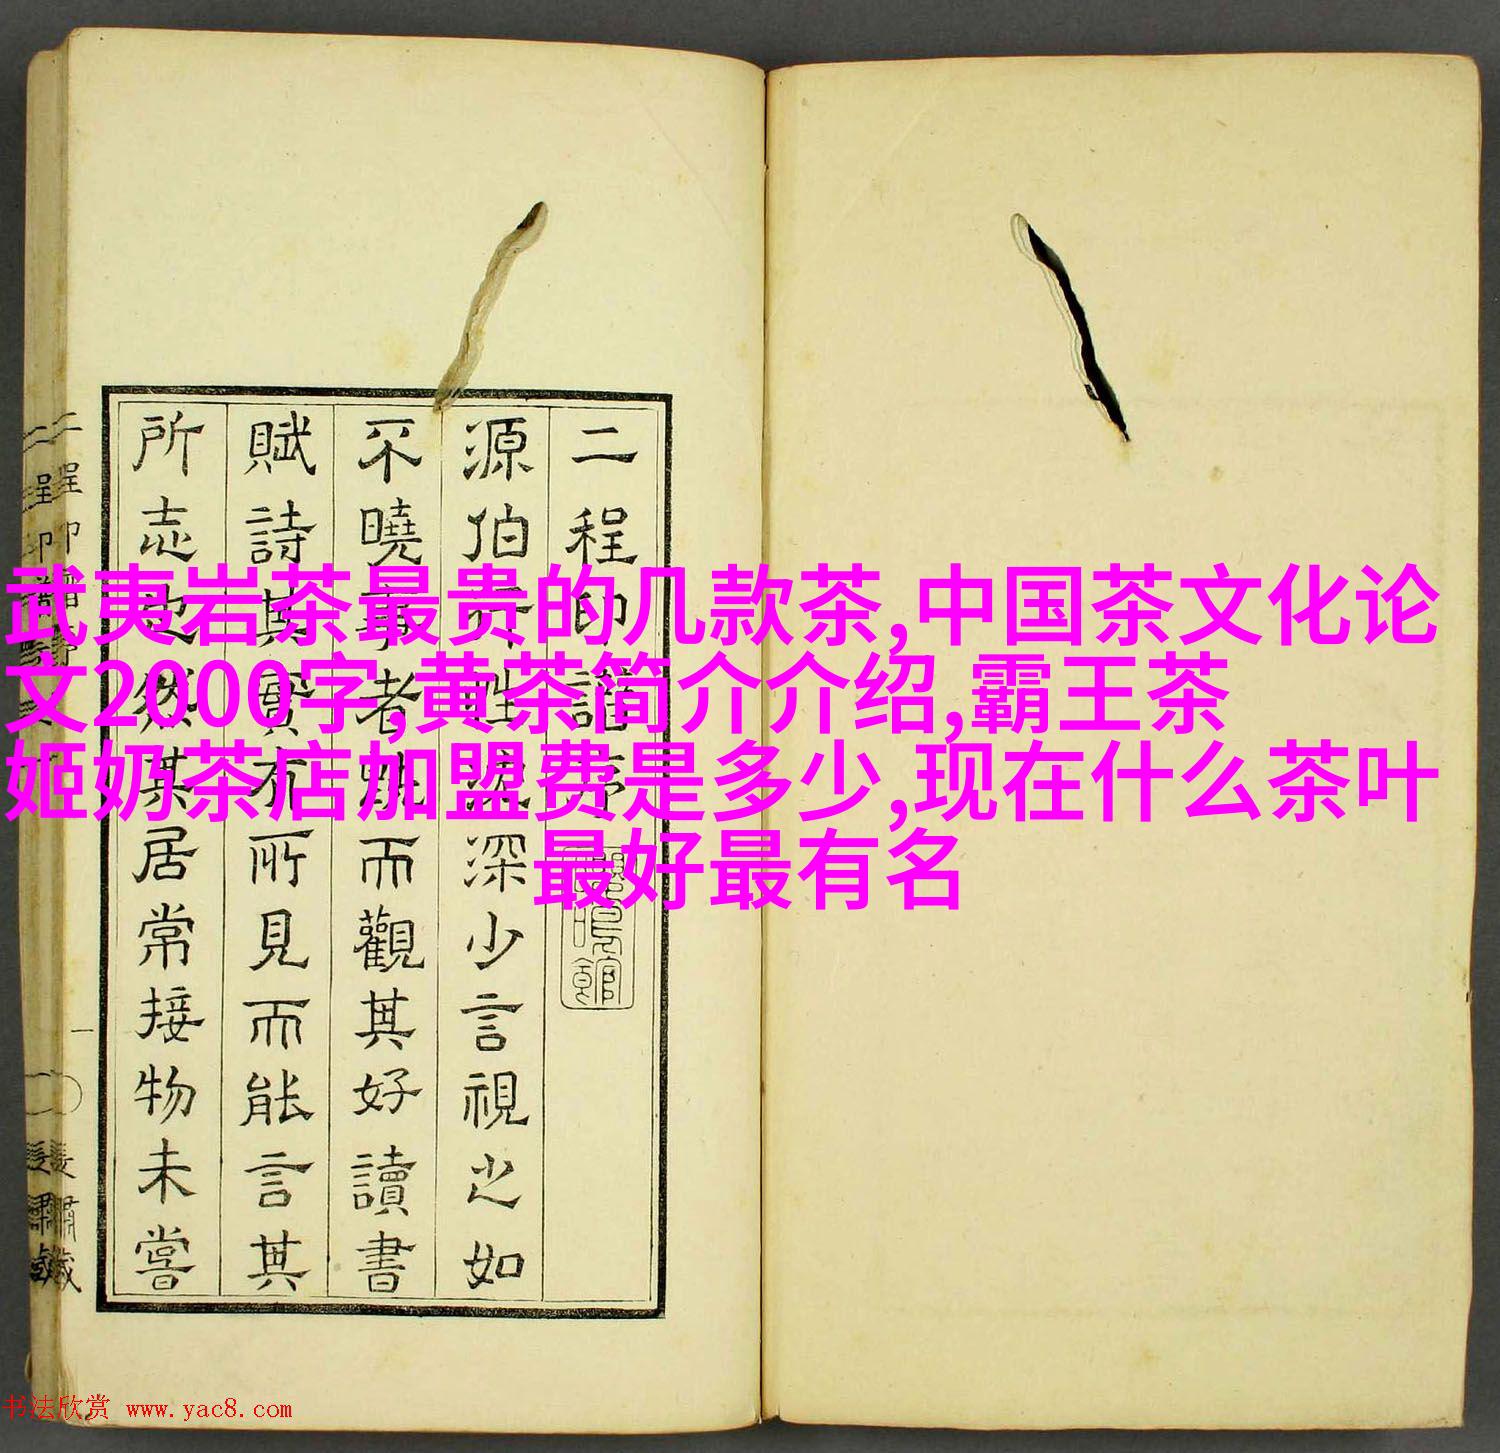 武夷岩茶最贵的几款茶,中国茶文化论
文2000字,黄茶简介介绍,霸王茶
姬奶茶店加盟费是多少,现在什么茶叶
最好最有名
二程印譜序
源伯性深少言視之如
不曉事者而觀其好讀書
賦詩其實有所見而能言其
所志也然其居常接物未嘗
二程印譜序
一
书法欣赏 www.yac8.com